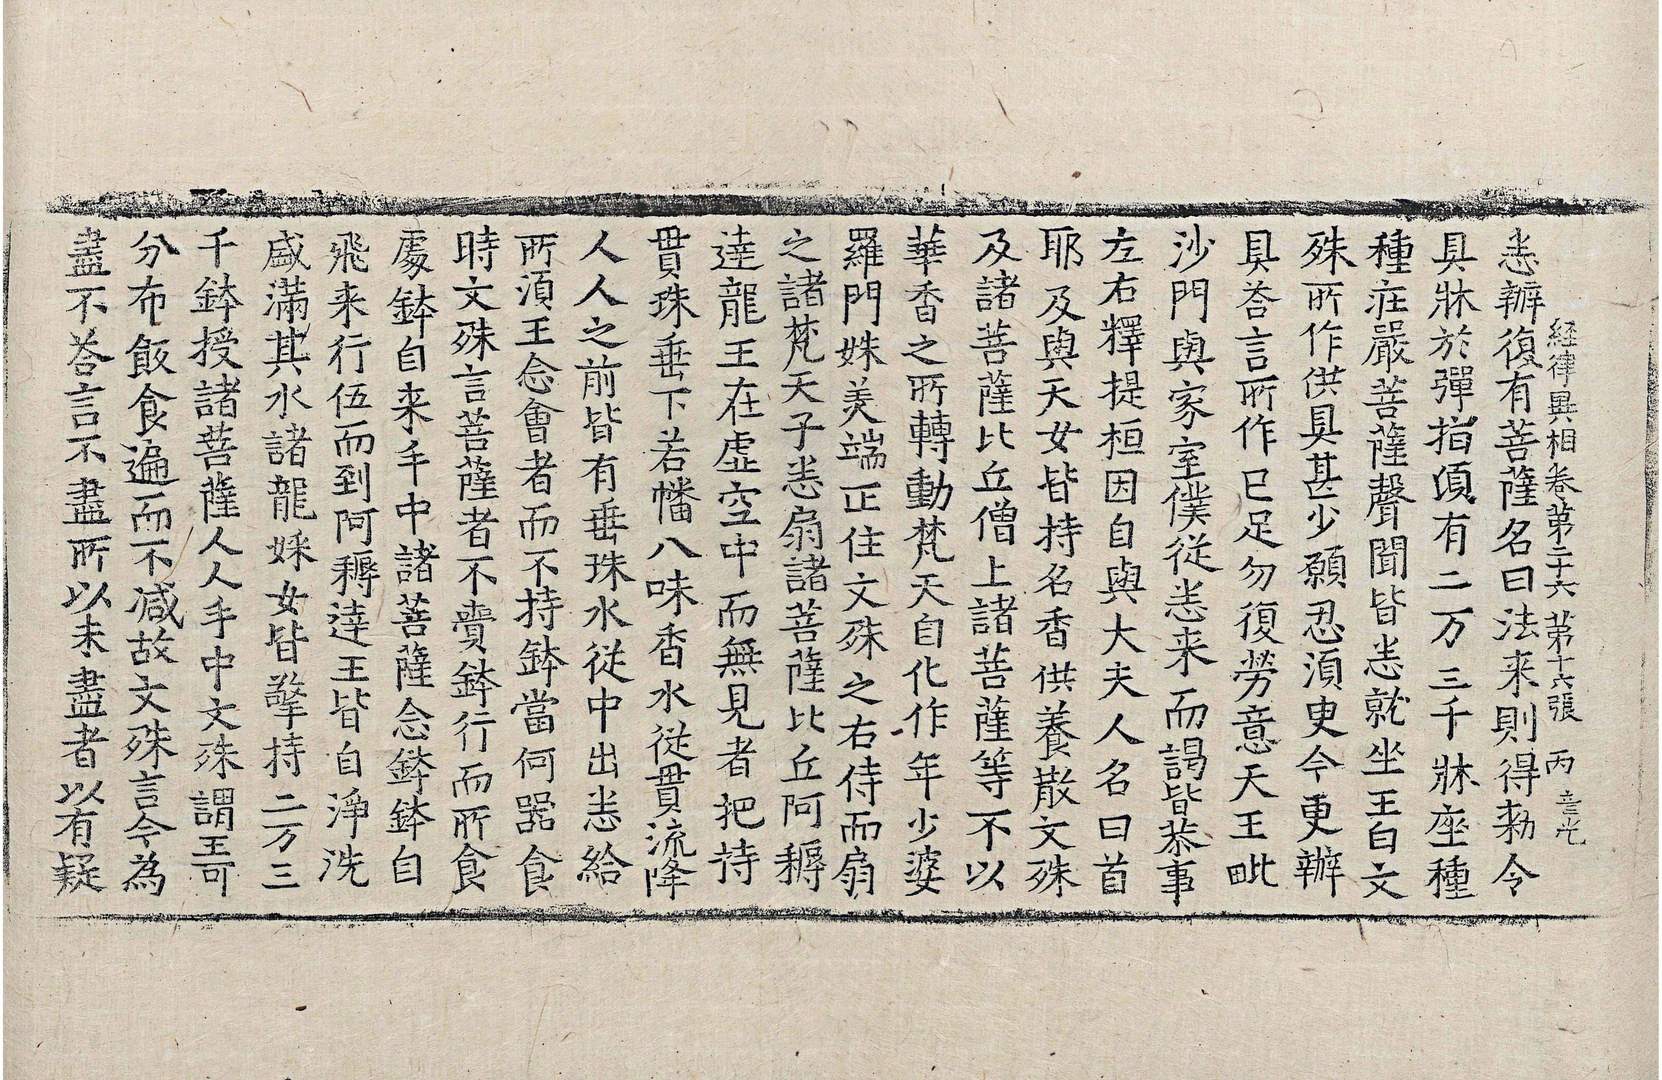 経律異相卷第二十六 第十六張 丙
悉辦復有菩薩名曰法来則得勑令
具牀於彈指湏有二万三千牀座種
種荘嚴菩薩聲聞皆悉就坐王白文
殊所作供具甚少願忍湏更今更辦
具荅言所作已足勿復勞意天王毗
沙門與家室僕従悉来而謁皆恭事
左右釋提桓因自與大夫人名曰首
耶及與天女皆持名香供養散文殊
及諸菩薩比丘僧上諸菩薩等不以
華香之所轉動梵天自化作年少婆
羅門姝美端正住文殊之右侍而扇
之諸梵天子悉扇諸菩薩比丘阿耨
達龍王在虚空中而無見者把持
貫珠垂下若幡八味香水従貫流降
人人之前皆有垂珠水従中出悉給
所湏王念會者而不持鉢當何器食
時文殊言菩薩者不賷鉢行而所食
䖏鉢自来手中諸菩薩念鉢鉢自
飛来行伍而到阿耨達王皆自淨洗
盛滿其水諸龍婇女皆擎持二万三
千鉢授諸菩薩人人手中文殊謂王可
分布飯食遍而不减故文殊言今為
盡不荅言不盡所以未盡者以有疑